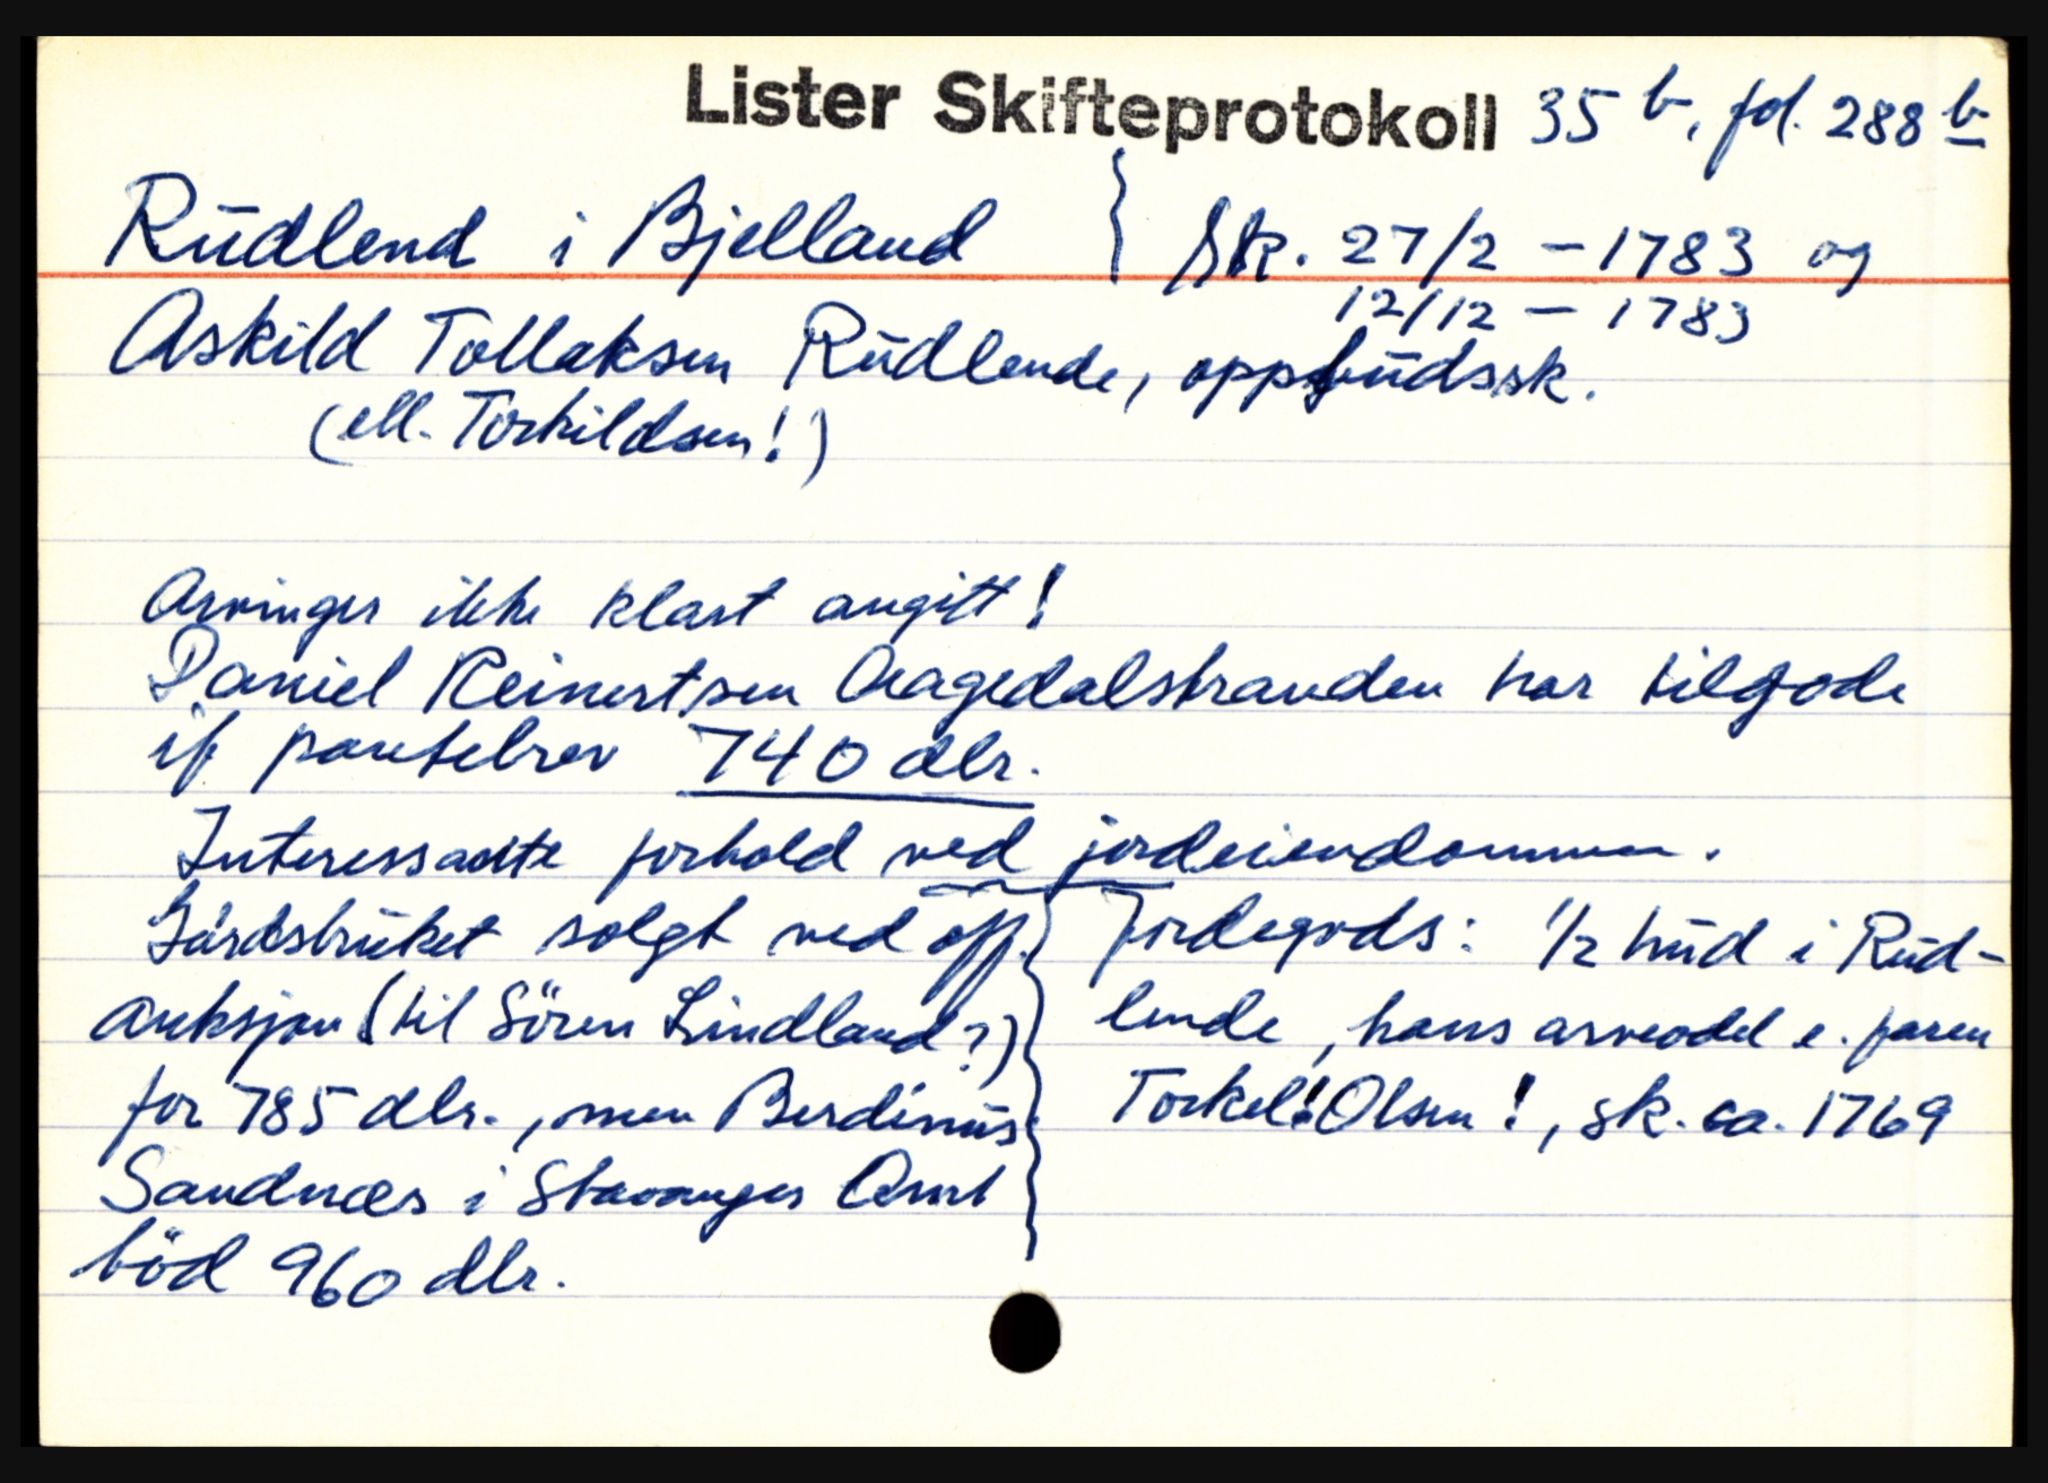 Lister Skifteprotokoll 35 b, fol. 288 b
Rudlend i Bjelland } Sk. 27/2 - 1783 og
12/12 - 1783
Askild Tollaksen Rudlende, oppbudssk.
(ell. Torkildsen!)
Arvinger ikke klart angitt!
Daniel Reinertsen Aagedalstranden har tilgode
if pantebrev 740 dlr.
Interessante forhold ved jordeiendommen.
Gårdsbruket solgt ved off.
auksjon (til Sören Lindland?)
for 785 dlr., men Berdinus
Sandnæs i Stavanger Amt
böd 960 dlr.
Jordegods: 1/2 hud i Rud-
lende, hans arveodel e. faren
Torkel! Olsen!, sk. ca. 1769